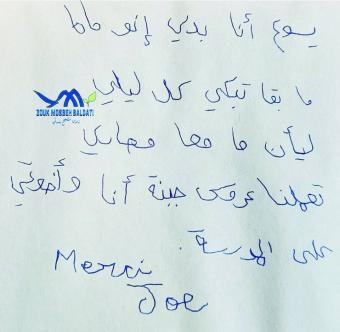 يسوع أنا بدي إنو ماما
ما بقا تبكي كل ليلي
ZOUK MOSBEH BALDATI
ليأن ما معا مصاري
تعملنا عروس جبنة أنا وأخواتي
على المدرسة.
Merci
Joe